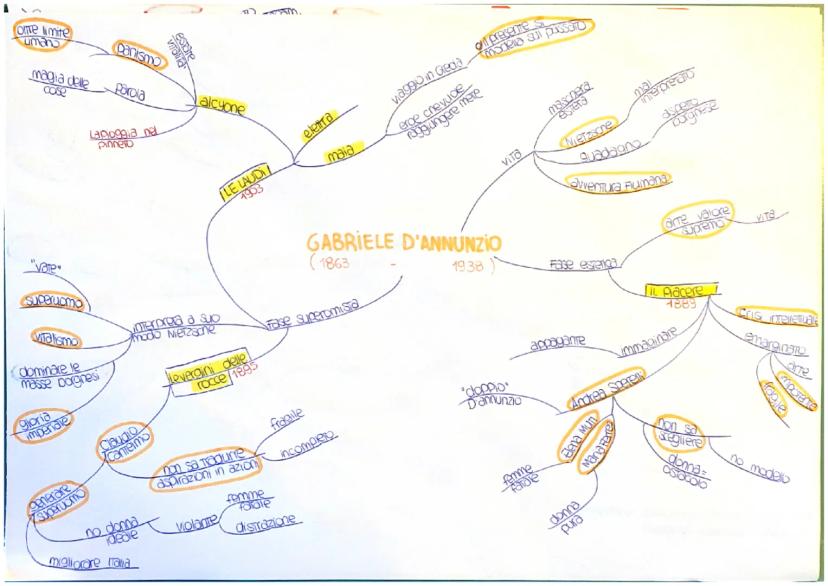 GABRIELE D'ANNUNZIO
(1863 - 1938)
vita
maschera
esteta
Nietzsche
mal
interpretato
guadagno
disprezzo
borghese
avventura fiumana
Fase estetica
arte valore
supremo
vita
IL PIACERE
1889
crisi intellettuale
emarginato
arte
impotente
fragile
immaginare
appagante
Andrea Sperelli
"doppio"
D'annunzio
Elena Muti
femme
fatale
Maria Ferres
donna
pura
non sa
scegliere
donna =
ostacolo
no modello
Fase superomista
LE LAUDI
1903
maia
viaggio in Grecia
il presente si
modella sul passato
eroe che vuole
raggiungere mete
elettra
alcyone
estate
panismo
oltre limite
umano
parola
magia delle
cose
La pioggia nel
pinneto
interpreta a suo
modo Nietzsche
"vate"
superuomo
vitalismo
dominare le
masse borghesi
gloria
imperiale
le vergini delle
rocce 1895
Claudio
Cantelmo
non sa tradurre
aspirazioni in azioni
fragile
incompleto
generare
superuomo
no donna
ideale
violante
femme
fatale
distrazione
migliorare Italia